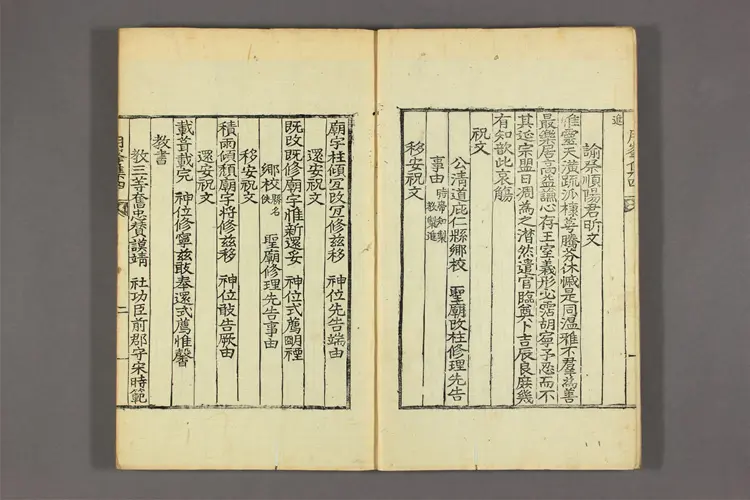 進
諭祭順陽君昕文
惟靈天潢疏派棣萼騰芬休慽是同溫雅不羣爲善
最樂居高益謙心存王室義形必霑胡寧予忍而不
其延宗盟日凋爲之潸然遣官臨奠卜吉辰良庶幾
有知歆此哀觴
祝文
公淸道庇仁縣鄕校 聖廟改柱修理先告
事由 時帶知製敎製進
移安祝文
廟宇柱傾宜改宜修玆移 神位先告端由
還安祝文
旣改旣修廟宇惟新還妥 神位式薦明禋
鄕校縣名佚 聖廟修理先告事由
移安祝文
積雨傾頹廟宇將修玆移 神位敢告厥由
還安祝文
載葺載完 神位修寧玆敢奉還式薦惟馨
敎書
敎三等奮忠贊謨靖 社功臣前郡守宋時範
集四
二